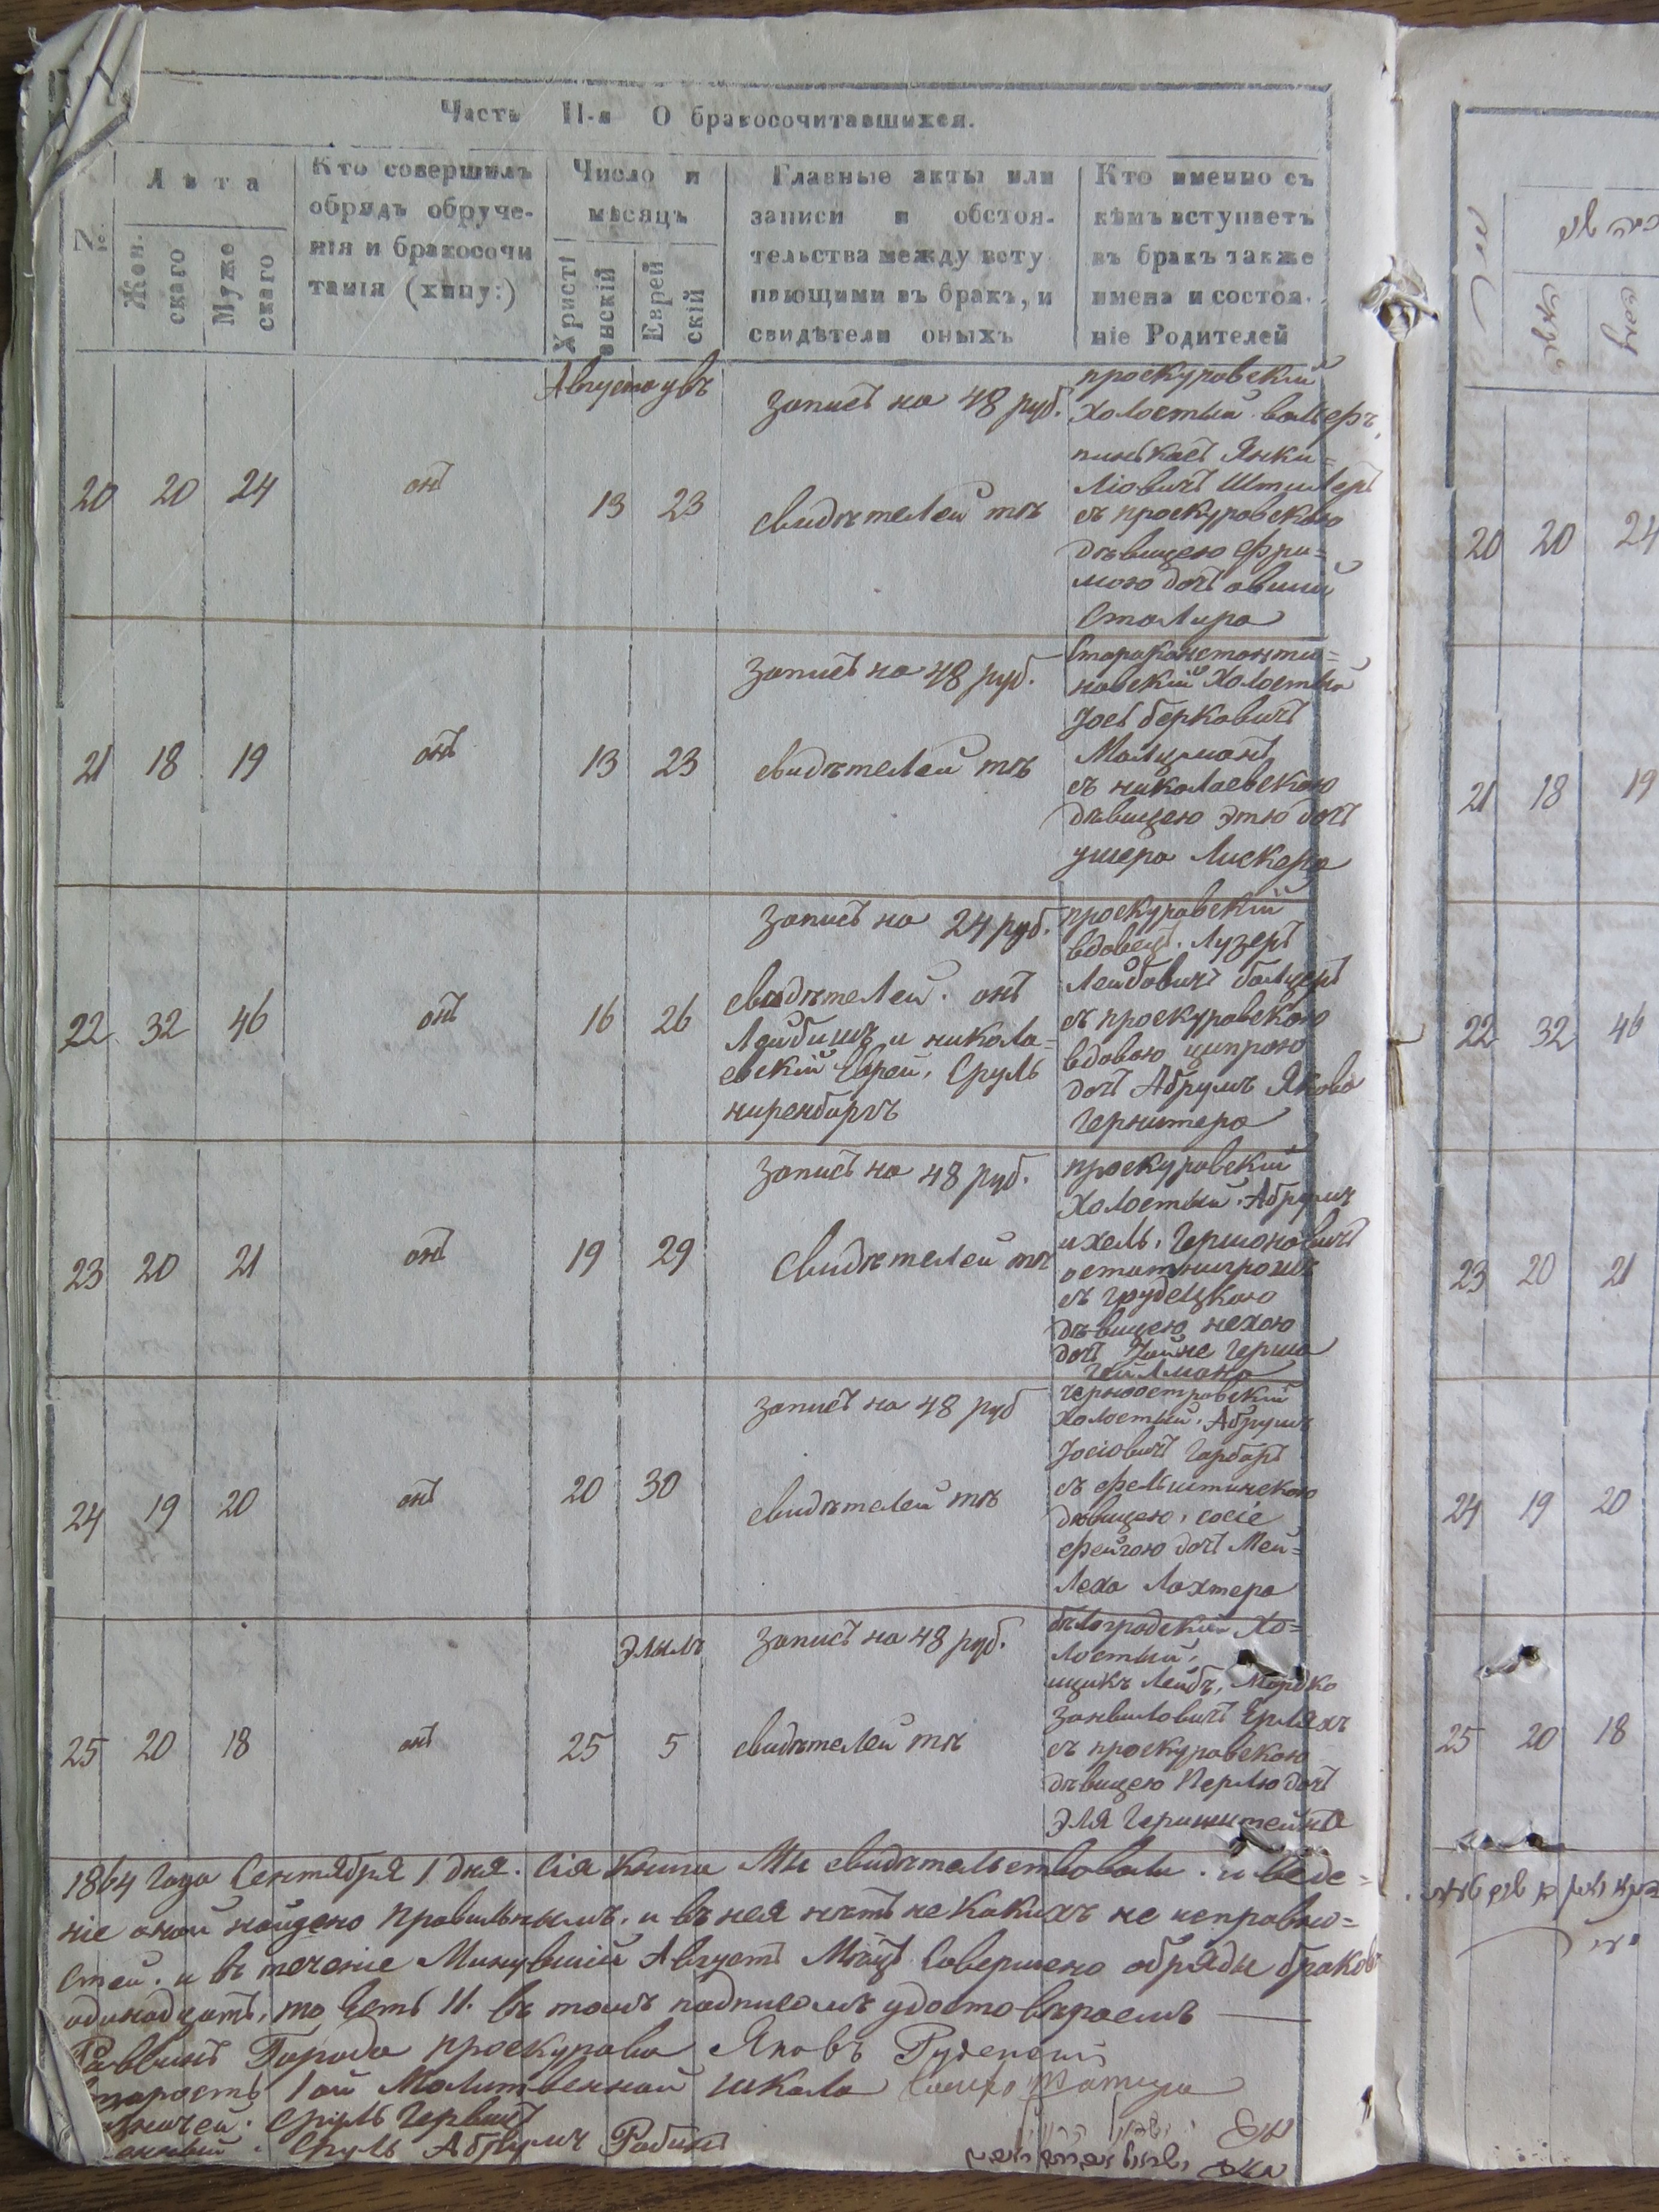 Часть II-я О бракосочитавшихся.
№
Лѣта
Жен-
скаго
Муже
скаго
Кто совершилъ
обрядъ обруче-
нія и бракосочи
танія (хипу:)
Число и
мѣсяцъ
Христі
анскій
Еврей
скій
Главные акты или
записи и обстоя-
тельства между всту
пающими въ бракъ, и
свидѣтели оныхъ
Кто именно съ
кѣмъ вступаетъ
въ бракъ также
имена и состоя-
ніе Родителей
Августа увъ
20 20 24 онъ 13 23
Запись на 48 руб.
свидѣтелей тѣ
проскуровскій
Холостый
пинькасъ Янки=
ліовичъ Штиллеръ
съ проскуровскою
дѣвицею фри=
мою дочь овшии
Столира
21 18 19 онъ 13 23
Запись на 48 руб.
свидѣтелей тѣ
Староконстанти=
новскій Холостый
Іось берковичъ
Малцманъ
съ николаевскою
дѣвицею Этю дочь
ушера Лискера
22 32 46 онъ 16 26
Запись на 24 руб.
свидѣтелей. онъ
Лейбишъ и никола=
евскій Еврей, Сруль
ниренбургъ
проскуровскій
вдовецъ. Лузеръ
Лейбовичъ балцеръ
съ проскуровскою
вдовою ципрою
дочь Абрумъ Якова
Герштера
23 20 21 онъ 19 29
Запись на 48 руб.
Свидѣтелей тѣ
проскуровскій
Холостый. Абрумъ
ихель. Гершоновичъ
съ грудецкою
дѣвицею нехою
дочь Іойне Герша
Гейлмана
24 19 20 онъ 20 30
Запись на 48 руб
свидѣтелей тѣ
черноостровскій
холостый. Абрумъ
Іосіовичъ Гарбаръ
съ фельштинскою
дѣвицею, сосіе
фейгою дочь Мей=
Леха Лахтера
Элылъ
25 20 18 онъ 25 5
Запись на 48 руб.
свидѣтелей тѣ
бѣлогродскій Хо=
лостый,
ицикъ Лейбъ, Мордко
Занвиловичъ Ерляхъ
съ проскуровскою
дѣвицею Перлю дочь
Эля Геринштейна
1864 Года Сентября 1 дня. Сія Книга Мы свидѣтельствовали. и веде=
ніе оной найдено Правильнымъ. и въ нея нѣтъ не какихъ не исправно=
стей. и въ теченіе Минувшій Августъ Мѣсцъ Совершено обряды браковъ
одинадцать, то Есть 11. въ томъ подписомъ удостовѣраемъ
Раввинъ Города Проскурова Яковъ
Старостъ 1 ой Молитвенной школа
Сруль Гервицъ
Сруль Абрумъ Рабинъ
20 20 24
21 18 19
22 32 46
23 20 21
24 19 20
25 20 18